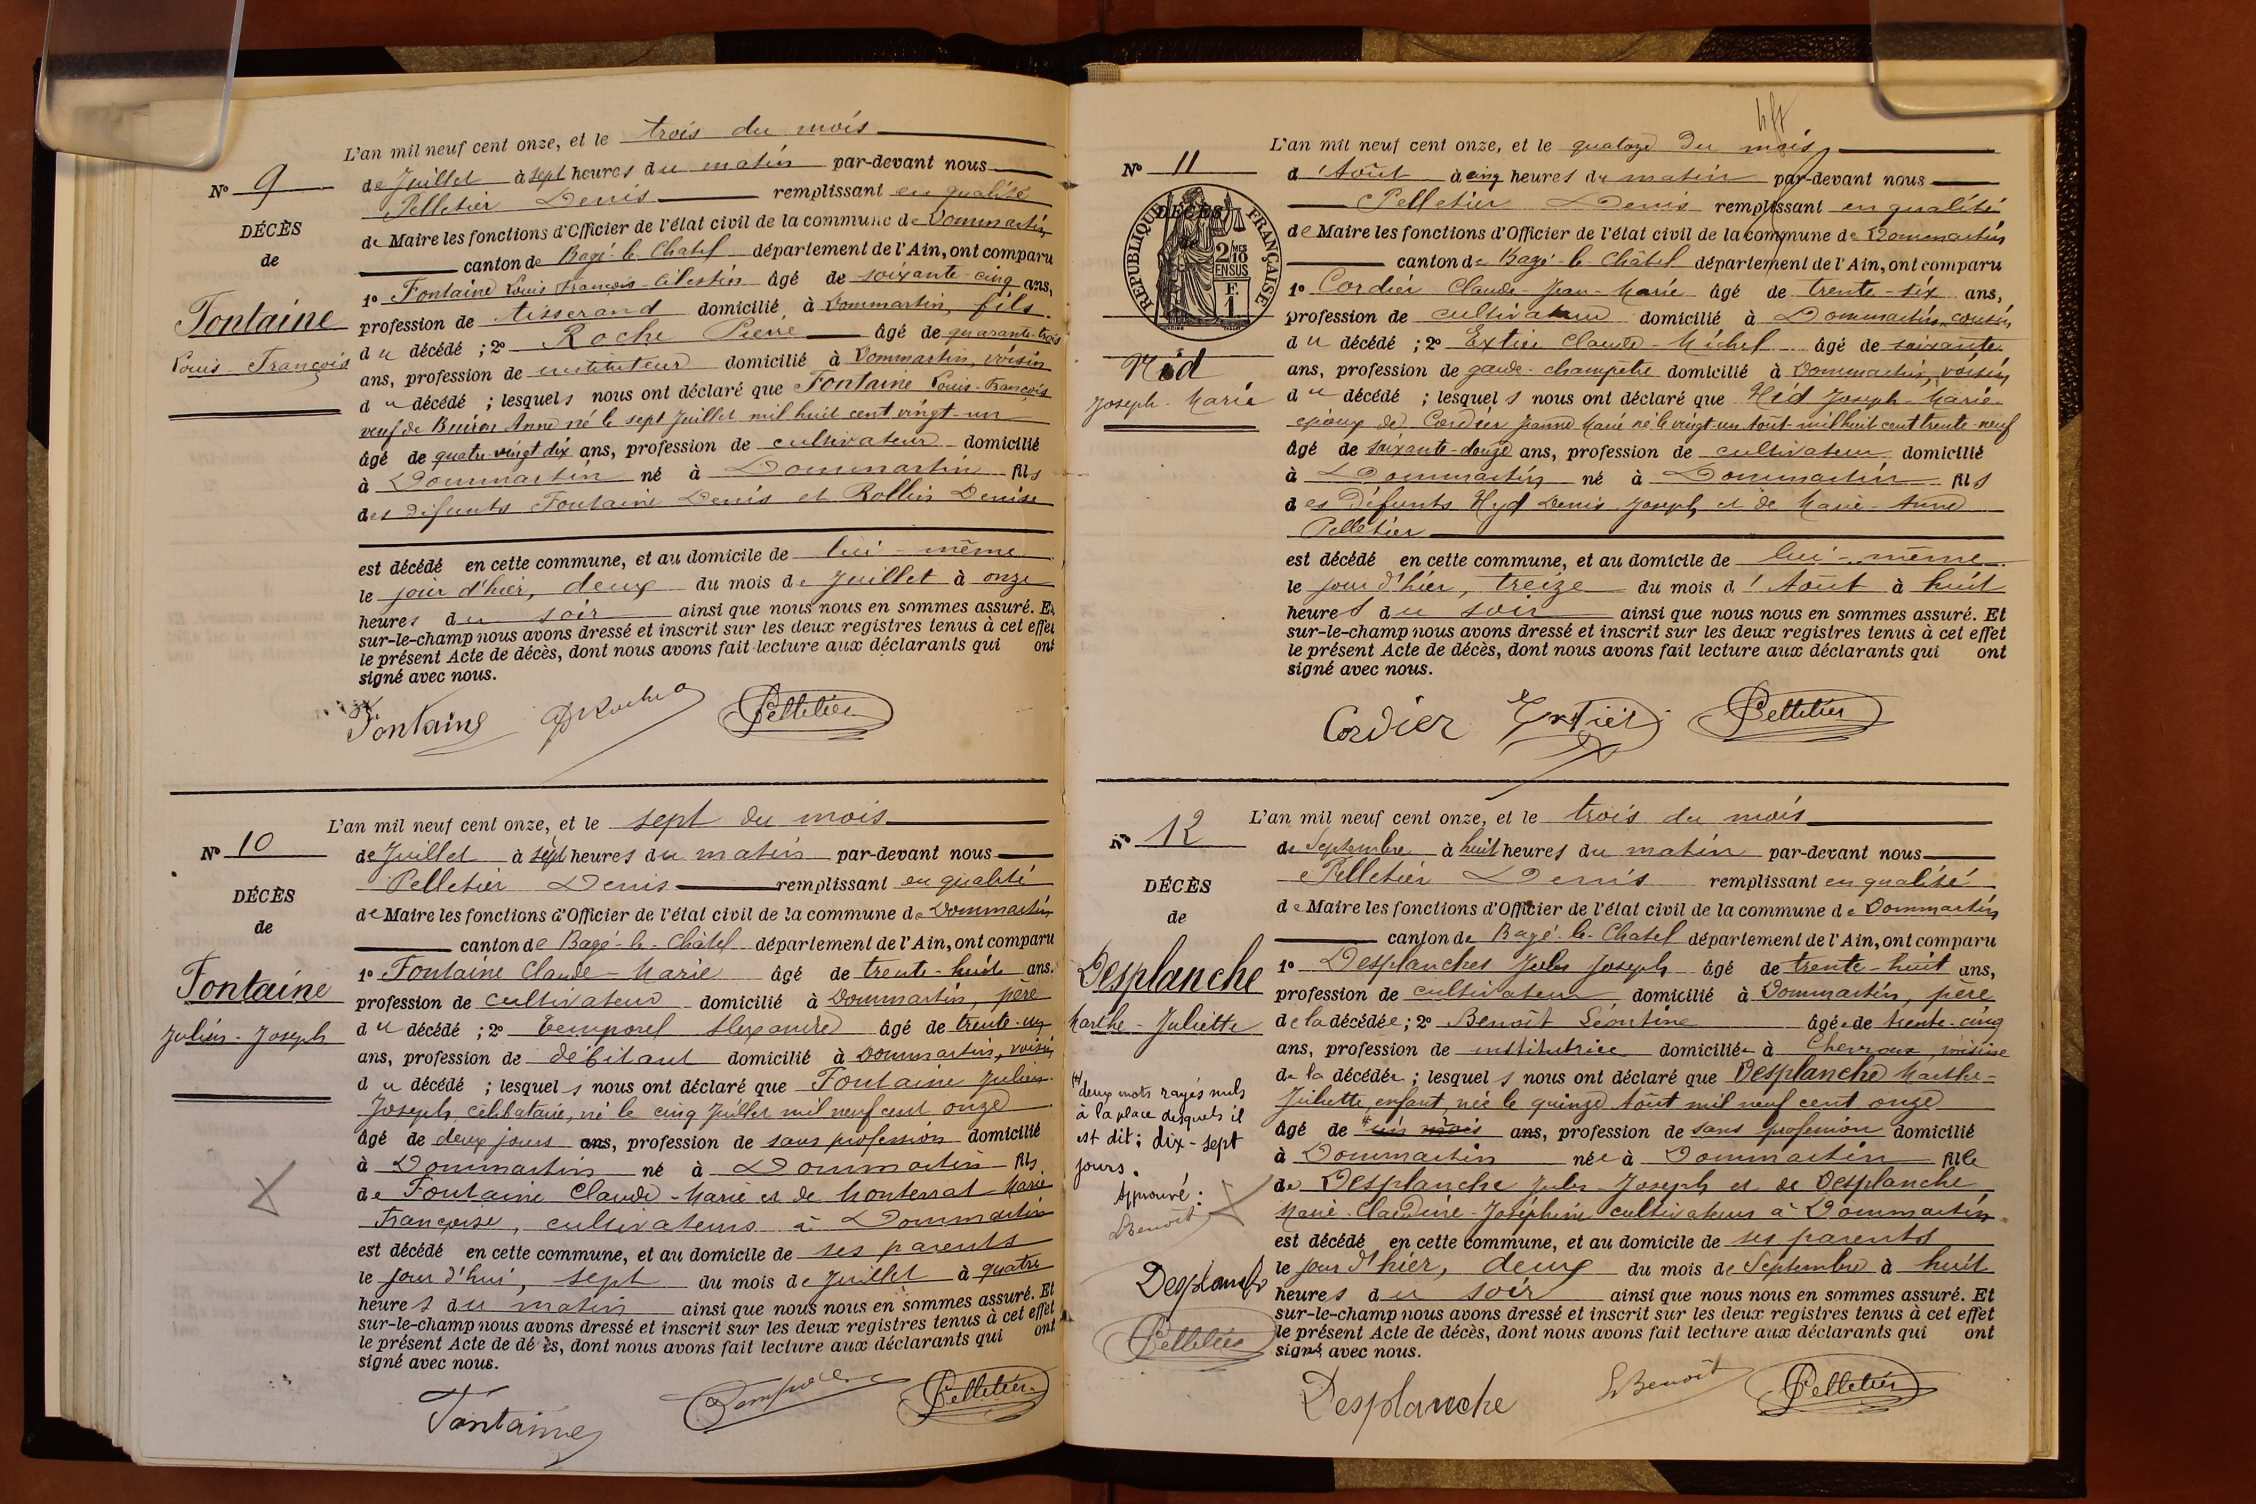 L'an mil neuf cent onze, et le trois du mois
N° 9
de Juillet à sept heures du matin par-devant nous
Pelletier Denis remplissant en qualité
DÉCÈS
de Maire les fonctions d'Officier de l'état civil de la commune de Dommartin
de
canton de Bagé-le-Chatel département de l'Ain, ont comparu
1° Fontaine Louis François Célestin âgé de soixante-cinq ans,
Fontaine
profession de tisserand domicilié à Dommartin, fils
du décédé ; 2° Roche Pierre âgé de quarante-trois
Louis-François
ans, profession de instituteur domicilié à Dommartin, voisin
du décédé ; lesquels nous ont déclaré que Fontaine Louis-François
veuf de Anne né le sept Juillet mil huit cent vingt-un
âgé de quatre-vingt-dix ans, profession de cultivateur domicilié
à Dommartin né à Dommartin fils
des défunts Fontaine Denis et Rollin Denise
est décédé en cette commune, et au domicile de lui-même
le jour d'hier, deux du mois de Juillet à onze
heures du soir ainsi que nous nous en sommes assuré. Et
sur-le-champ nous avons dressé et inscrit sur les deux registres tenus à cet effet
le présent Acte de décès, dont nous avons fait lecture aux déclarants qui ont
signé avec nous.
Fontaine PRoche Pelletier
L'an mil neuf cent onze, et le sept du mois
N° 10
de Juillet à sept heures du matin par-devant nous
Pelletier Denis remplissant en qualité
DÉCÈS
de Maire les fonctions d'Officier de l'état civil de la commune de Dommartin
de
canton de Bagé-le-Châtel département de l'Ain, ont comparu
1° Fontaine Claude-Marie âgé de trente-huit ans.
Fontaine
profession de cultivateur domicilié à Dommartin, père
Julien-Joseph
du décédé ; 2° Temporel Alexandre âgé de trente-un
ans, profession de débitant domicilié à Dommartin, voisin
du décédé ; lesquels nous ont déclaré que Fontaine Julien-
Joseph, célibataire, né le cinq Juillet mil neuf cent onze
âgé de deux jours ans, profession de sans profession domicilié
à Dommartin né à Dommartin fils
de Fontaine Claude-Marie et de Monterrat Marie
Françoise, cultivateurs à Dommartin
est décédé en cette commune, et au domicile de ses parents
le jour d'hui, sept du mois de Juillet à quatre
heures du matin ainsi que nous nous en sommes assuré. Et
sur-le-champ nous avons dressé et inscrit sur les deux registres tenus à cet effet
le présent Acte de dé ès, dont nous avons fait lecture aux déclarants qui ont
signé avec nous.
Fontaine Temporel Pelletier
L'an mil neuf cent onze, et le quatorze du mois
N° 11
d'Août à cinq heures du matin par-devant nous
Pelletier Denis remplissant en qualité
DÉCÈS
RÉPUBLIQUE FRANÇAISE
2/10 EN SUS
F. 1
de Maire les fonctions d'Officier de l'état civil de la commune de Dommartin
canton de Bagé-le-Châtel département de l'Ain, ont comparu
1° Cordier Claude-Jean-Marie âgé de trente-six ans,
profession de cultivateur domicilié à Dommartin, cousin
du décédé ; 2° Extier Claude-Michel âgé de soixante
Hid
ans, profession de garde-champêtre domicilié à Dommartin, voisin
Joseph-Marie
du décédé ; lesquels nous ont déclaré que Hid Joseph-Marie
époux de Cordier Jeanne Marie né le vingt-un Août mil huit cent trente-neuf
âgé de soixante-douze ans, profession de cultivateur domicilié
à Dommartin né à Dommartin fils
des défunts Hyd Denis-Joseph et de Marie-Anne
Pelletier
est décédé en cette commune, et au domicile de lui-même
le jour d'hier, treize du mois d'Août à huit
heures du soir ainsi que nous nous en sommes assuré. Et
sur-le-champ nous avons dressé et inscrit sur les deux registres tenus à cet effet
le présent Acte de décès, dont nous avons fait lecture aux déclarants qui ont
signé avec nous.
Cordier Extier Pelletier
L'an mil neuf cent onze, et le trois du mois
N° 12
de Septembre à huit heures du matin par-devant nous
Pelletier Denis remplissant en qualité
DÉCÈS
de Maire les fonctions d'Officier de l'état civil de la commune de Dommartin
de
canton de Bagé-le-Chatel département de l'Ain, ont comparu
Desplanche
1° Desplanches Jules Joseph âgé de trente-huit ans,
profession de cultivateur domicilié à Dommartin, père
Marthe-Juliette
de la décédée ; 2° Benoît Léontine âgée de trente-cinq
ans, profession de institutrice domiciliée à Chevroux, voisine
de la décédée ; lesquels nous ont déclaré que Desplanche Marthe-
Juliette, enfant, née le quinze Août mil neuf cent onze
âgé de un mois ans, profession de sans profession domicilié
à Dommartin née à Dommartin fille
de Desplanche Jules-Joseph et de Desplanche
Marie-Claudine-Joséphine cultivateurs à Dommartin
est décédé en cette commune, et au domicile de ses parents
le jour d'hier, deux du mois de Septembre à huit
heures du soir ainsi que nous nous en sommes assuré. Et
sur-le-champ nous avons dressé et inscrit sur les deux registres tenus à cet effet
le présent Acte de décès, dont nous avons fait lecture aux déclarants qui ont
signé avec nous.
deux mots rayés nuls
à la place desquels il
est dit : dix-sept
jours.
Approuvé :
Benoît
Desplanche
Pelletier
Desplanche LBenoît Pelletier